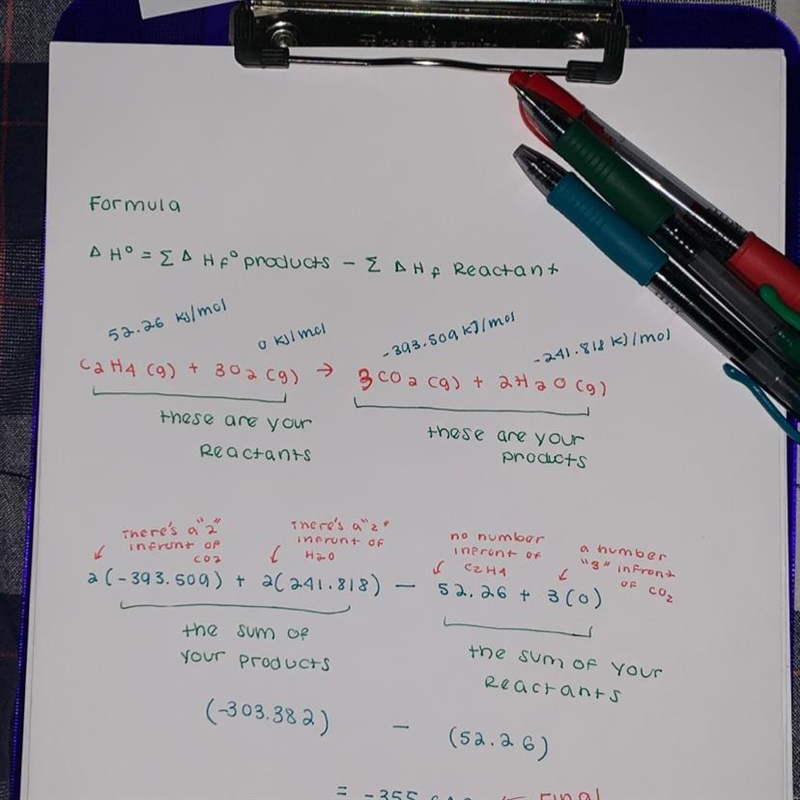 Formula
Δ H° = Σ Δ Hf° products - Σ Δ Hf Reactant
52.26 kJ/mol 0 kJ/mol -393.509 kJ/mol -241.818 kJ/mol
C2H4 (g) + 3O2 (g) → 3CO2 (g) + 2H2O (g)
these are your
Reactants
these are your
products
There's a "2"
infront of
CO2
There's a "2"
infront of
H2O
no number
infront of
C2H4
a number
"3" infront
of CO2
2(-393.509) + 2(241.818) — 52.26 + 3(0)
the sum of
your products
the sum of your
Reactants
(-303.382) — (52.26)
= -355 ← Final